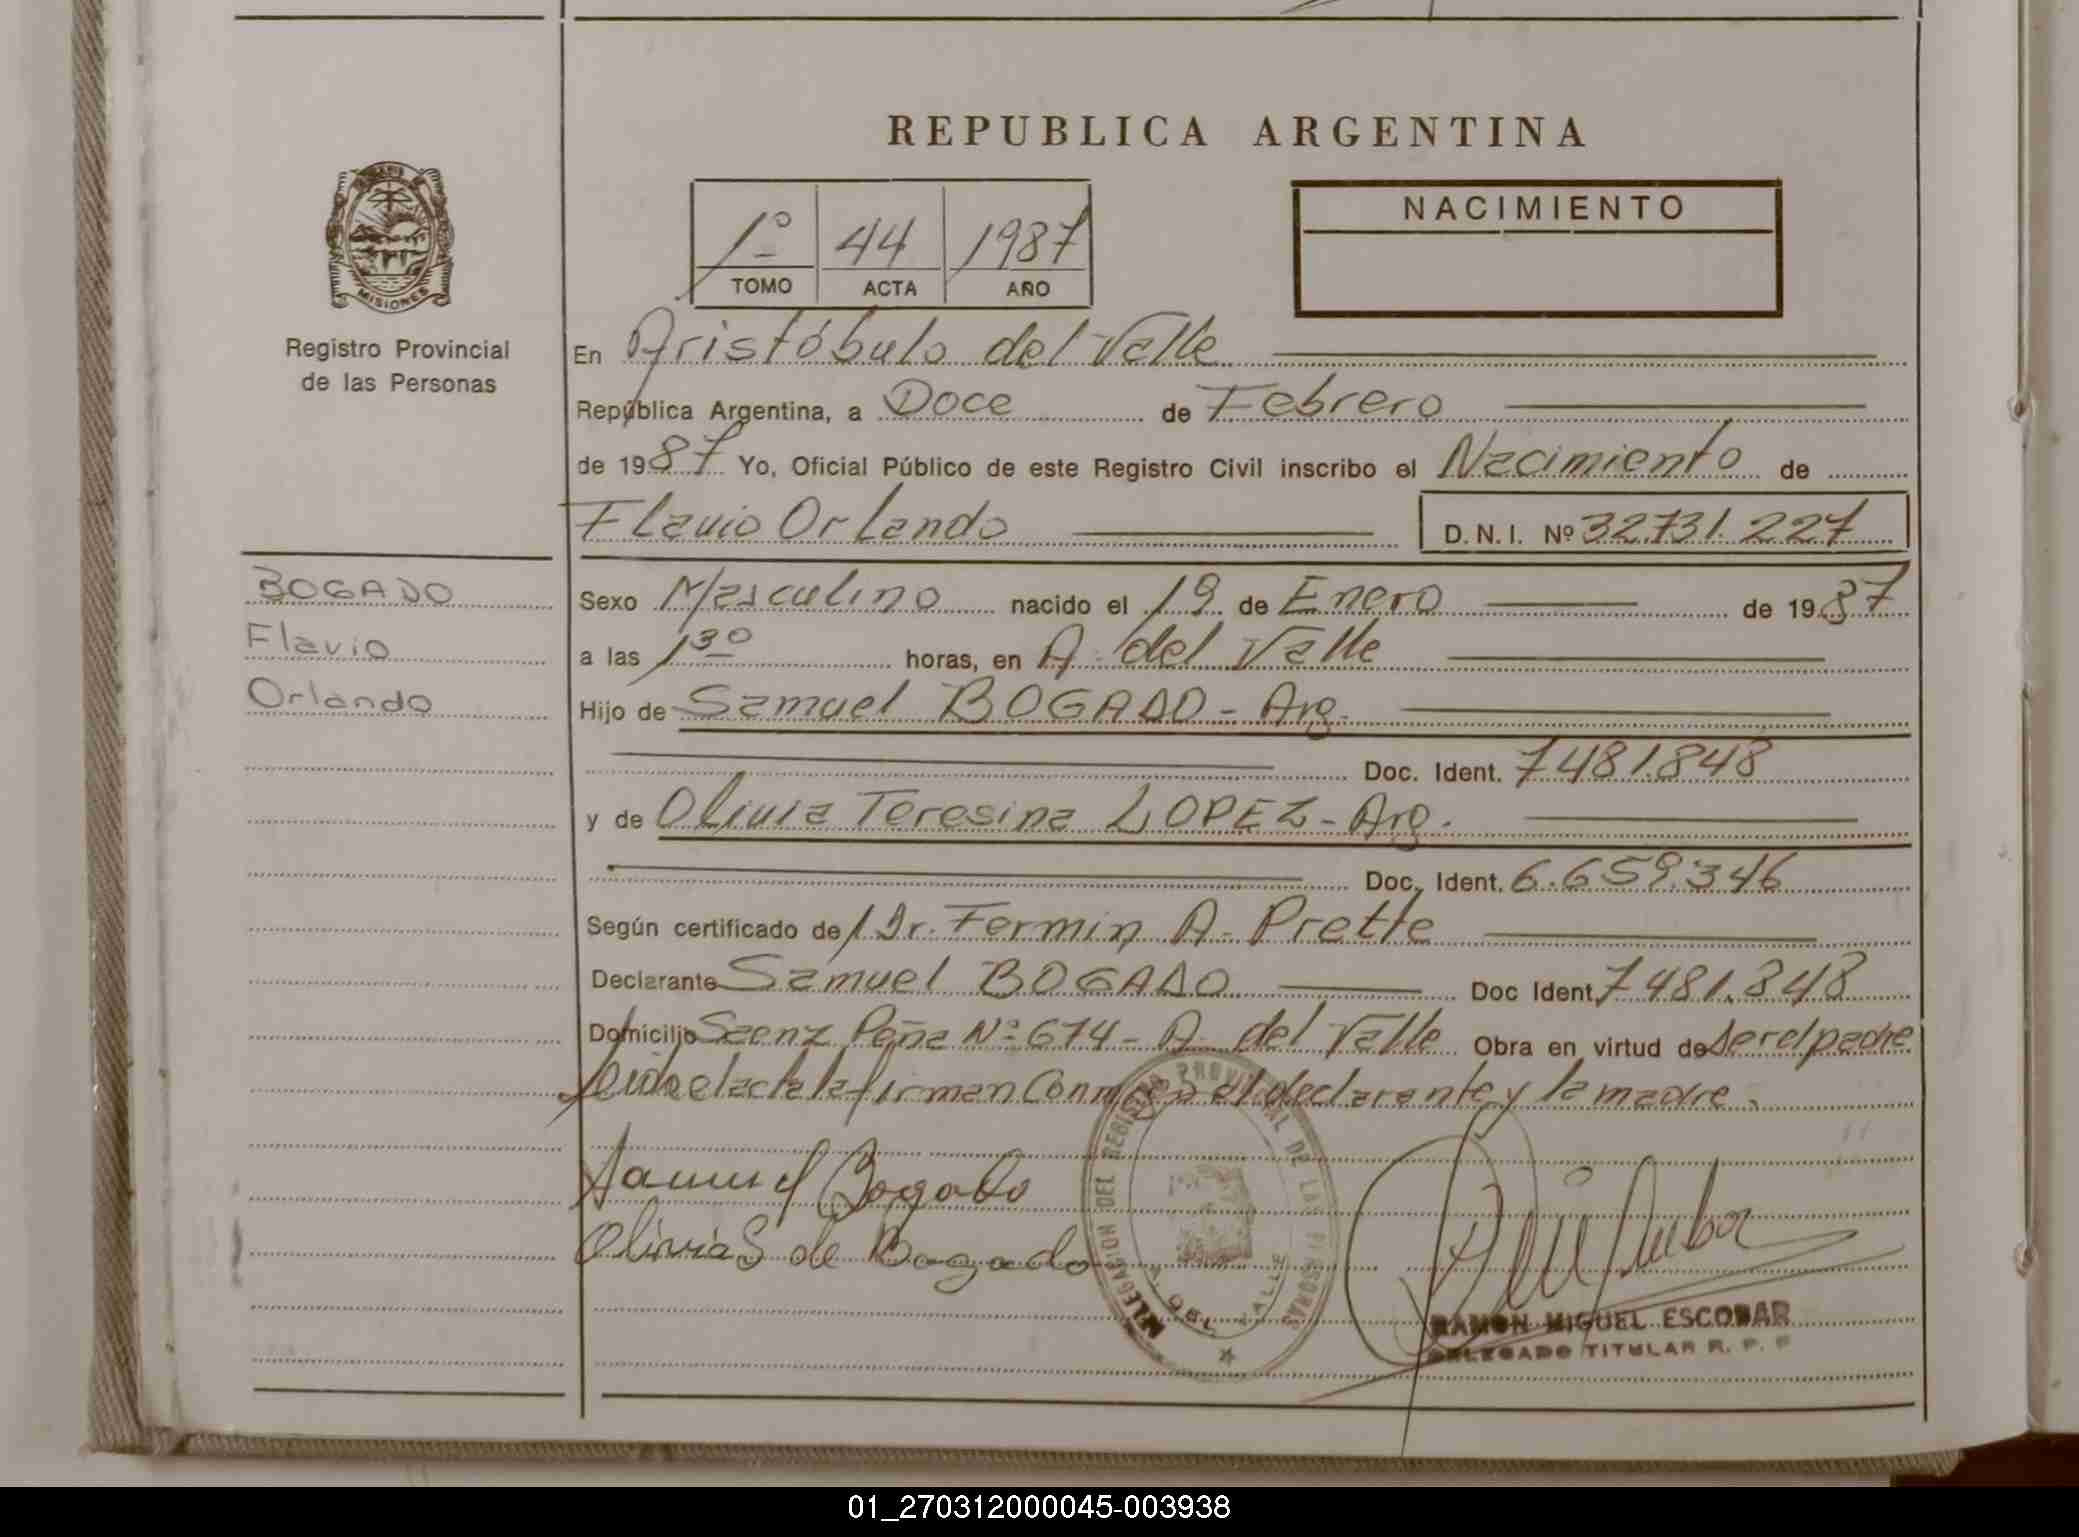 REPUBLICA ARGENTINA
1º 44 1987
TOMO ACTA AÑO
NACIMIENTO
MISIONES
Registro Provincial
de las Personas
En Aristóbulo del Valle
República Argentina, a Doce de Febrero
de 1987 Yo, Oficial Público de este Registro Civil inscribo el Nacimiento de
Flavio Orlando D.N.I. Nº 32.731.227
BOGADO
Flavio
Orlando
Sexo Masculino nacido el 19 de Enero de 1987
a las 1 30 horas, en A. del Valle
Hijo de Samuel BOGADO - Arg.
Doc. Ident. 7481.848
y de Olivia Teresina LOPEZ - Arg.
Doc. Ident. 6.659.346
Según certificado de Dr. Fermin A. Prette
Declarante Samuel BOGADO Doc Ident. 7481.848
Domicilio Saenz Peña Nº 674 - A. del Valle Obra en virtud de ser el padre
Leida el acta la firman Conmigo el declarante y la madre.
Samuel Bogado
Olivia S de Bogado
DELEGACION DEL REGISTRO PROVINCIAL DE LAS PERSONAS
A. DEL VALLE
RAMON MIGUEL ESCOBAR
DELEGADO TITULAR R. P. P
01_270312000045-003938